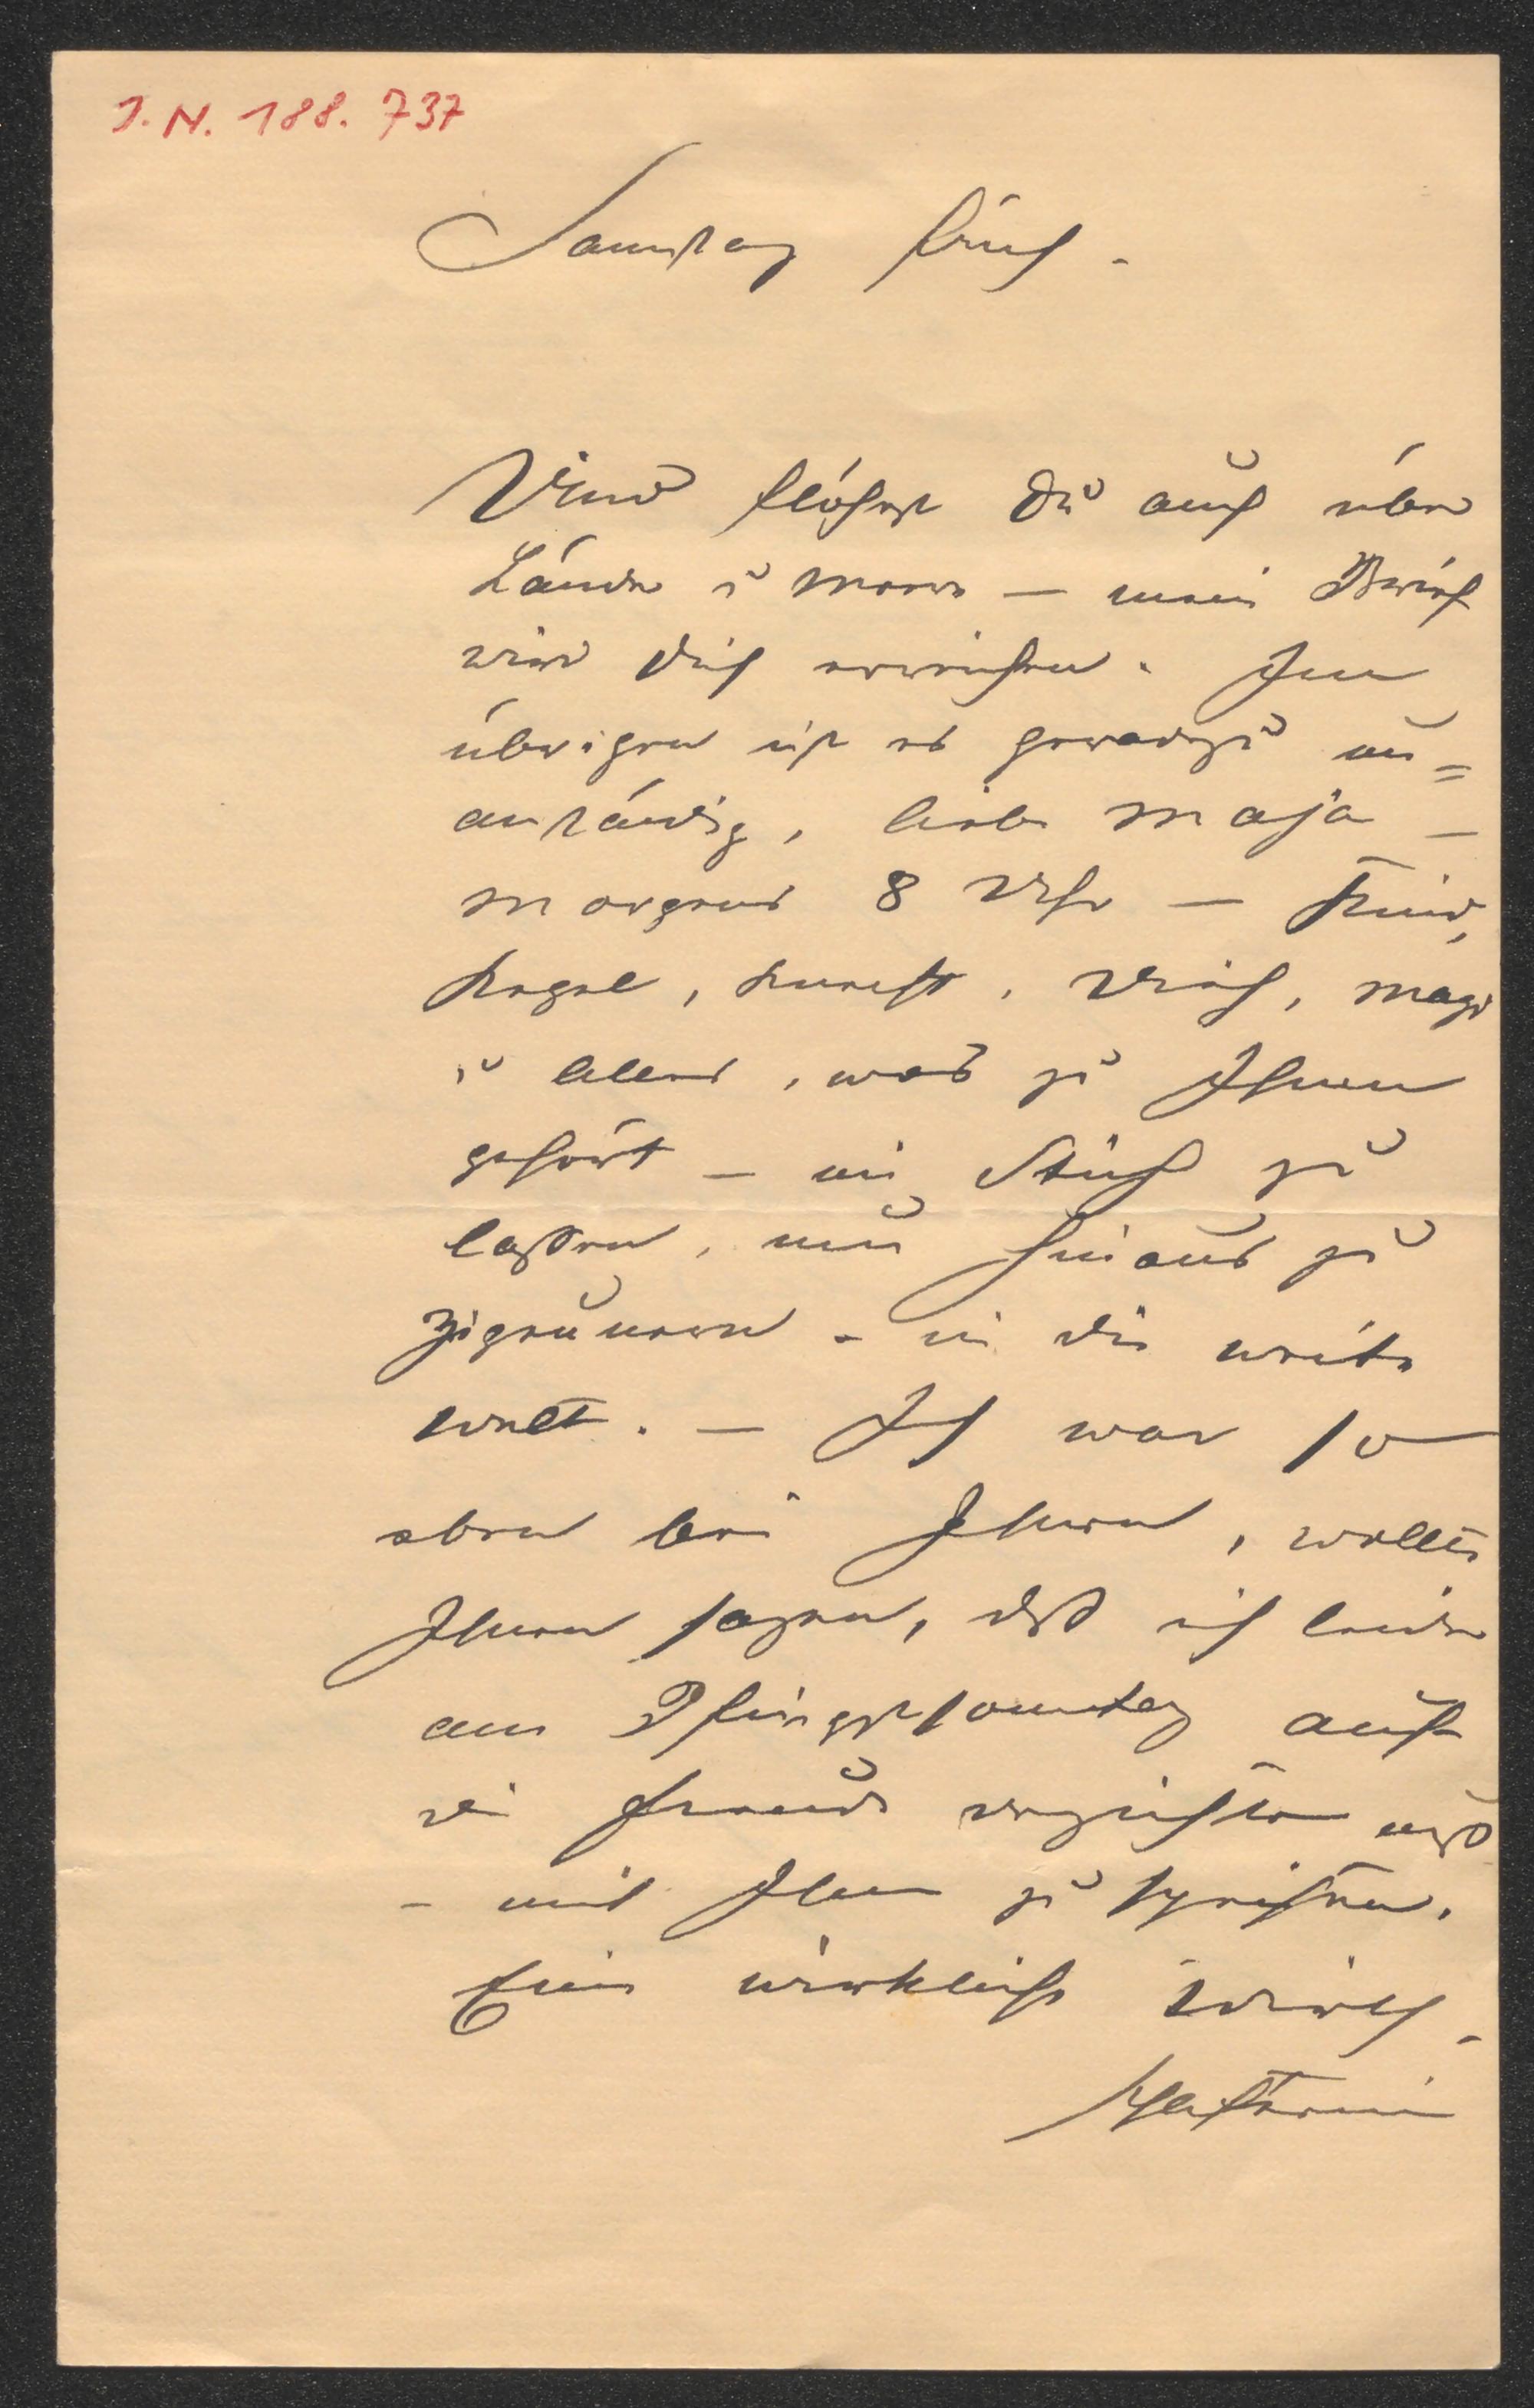 I. N. 188.737
Samstag früh.
Und flöhest Du auch über
Länder u Meere – mein Brief
wird Dich erreichen. Im
übrigen ist es geradezu un=
anständig, liebe Maja –
morgens 8 Uhr – Kind,
Kegel, Knecht, Vieh, Magd
u alles, was zu Ihnen
gehört – im Stich zu
lassen, um hinaus zu
zigeunern – in die weite
Welt. – Ich war so
eben bei Ihnen, wollte
Ihnen sagen, daß ich leider
am Pfingstsonntag auf
die Freude verzichten muß
– mit Ihnen zu speisen.
Eine wirkliche